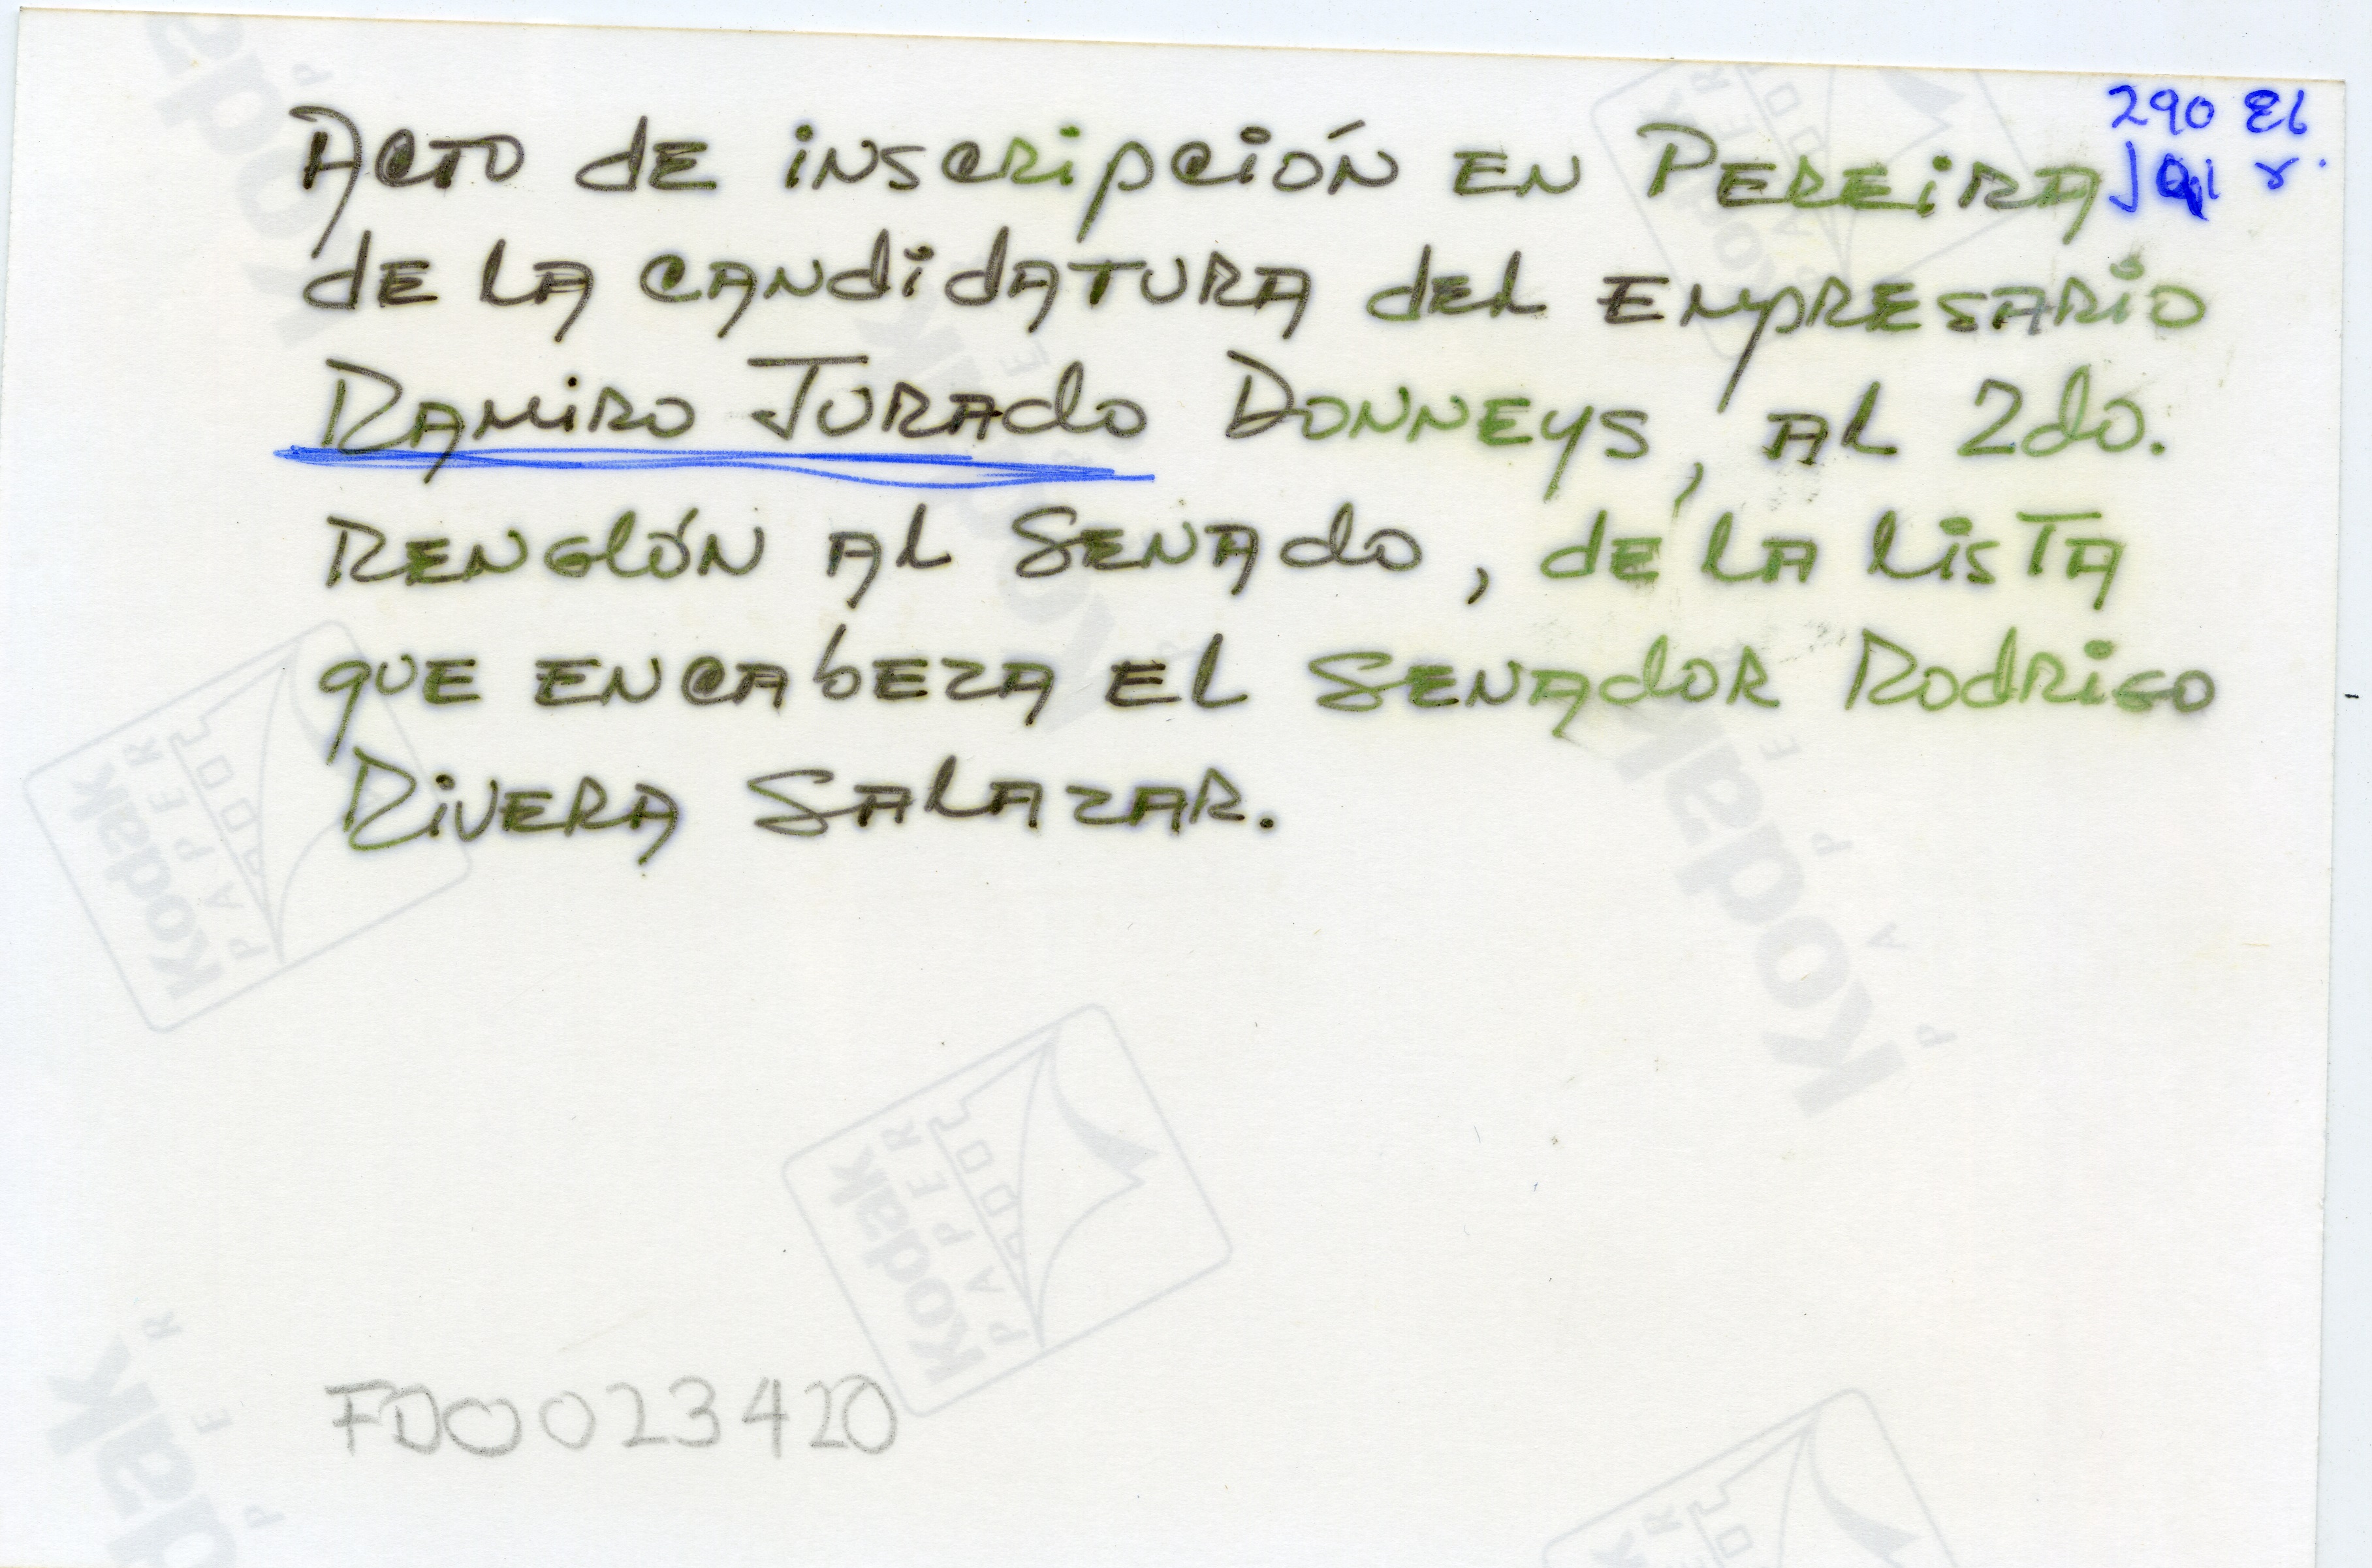 Acto de inscripción en Pereira
de la candidatura del Empresario
Ramiro Jurado Donneys, al 2do.
Renglón al Senado, de la lista
que encabeza el Senador Rodrigo
Rivera Salazar.
290
FD0023420
Kodak
PAPER
Kodak
PAPER
Kodak
PAPER
Kodak